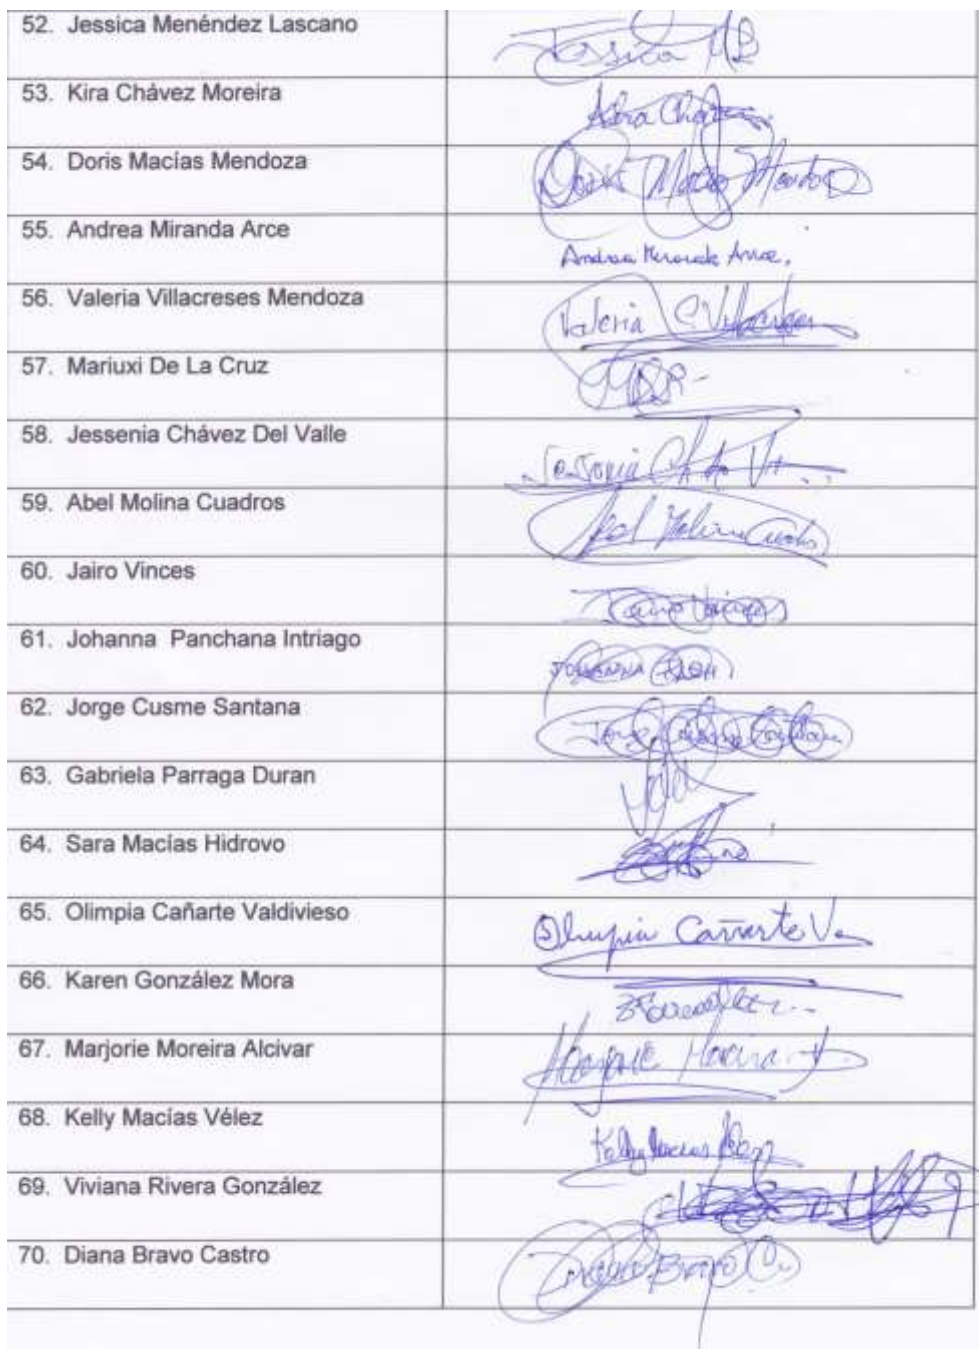 52. Jessica Menéndez Lascano
Jessica
53. Kira Chávez Moreira
54. Doris Macías Mendoza
Doris Macías Mendoza
55. Andrea Miranda Arce
Andrea Miranda Arce.
56. Valeria Villacreses Mendoza
Valeria
57. Mariuxi De La Cruz
58. Jessenia Chávez Del Valle
59. Abel Molina Cuadros
Abel Molina
60. Jairo Vinces
61. Johanna Panchana Intriago
JOHANNA
62. Jorge Cusme Santana
Jorge
63. Gabriela Parraga Duran
64. Sara Macías Hidrovo
65. Olimpia Cañarte Valdivieso
Olimpia Cañarte V
66. Karen González Mora
67. Marjorie Moreira Alcivar
Marjorie Moreira
68. Kelly Macías Vélez
Kelly Macías Vélez
69. Viviana Rivera González
70. Diana Bravo Castro
Diana Bravo C.